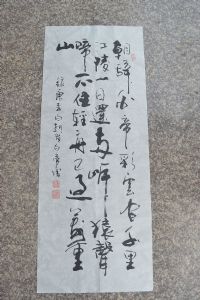 朝辭白帝彩雲間千里
江陵一日還兩岸猿聲
啼不住輕舟已過萬重
山
錄唐李白朝發白帝城